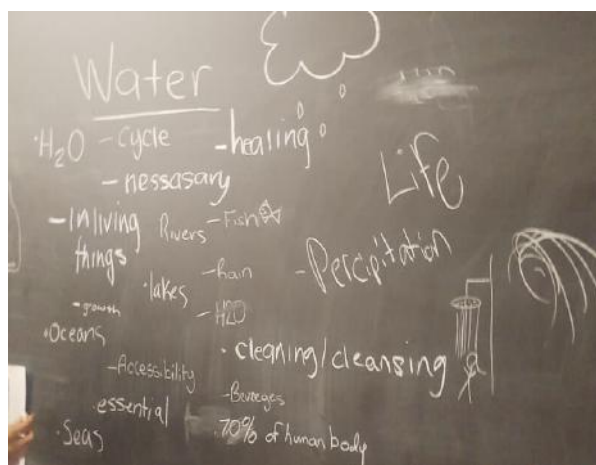 Water
·H₂O - cycle - healing
- nessasary
Life
- In living things
Rivers - Fish
- Percipitation
- Rain
·lakes
- growth
- H2O
·Oceans
· cleaning/cleansing
- Accessibility
- Beveeges
·essential
·70% of human body
·Seas